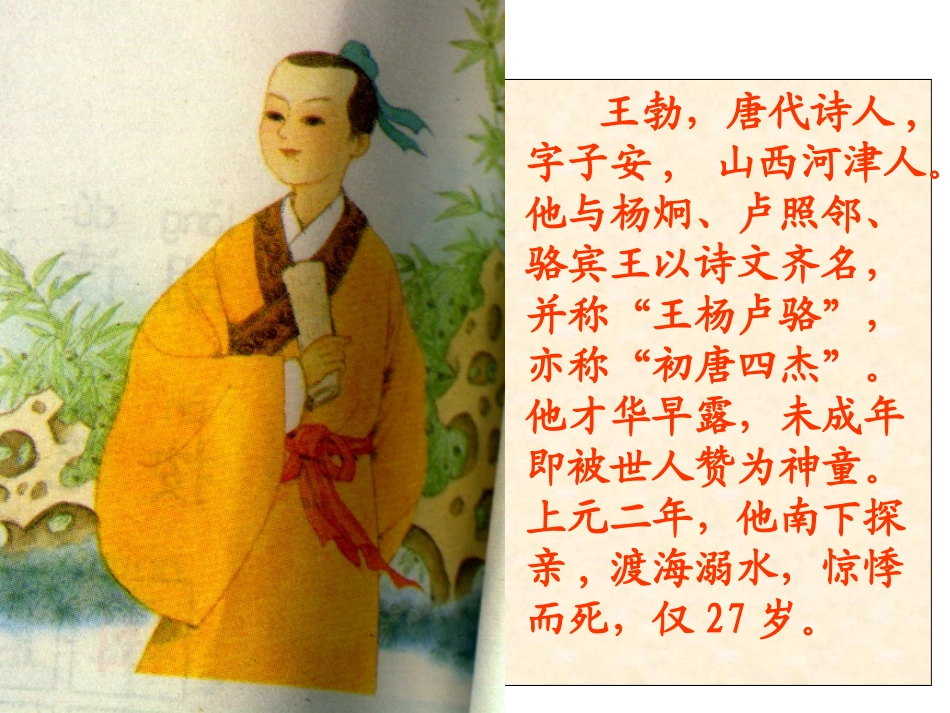 王勃，唐代诗人，
字子安， 山西河津人。
他与杨炯、卢照邻、
骆宾王以诗文齐名，
并称“王杨卢骆”，
亦称“初唐四杰”。
他才华早露，未成年
即被世人赞为神童。
上元二年，他南下探
亲，渡海溺水，惊悸
而死，仅 27 岁。